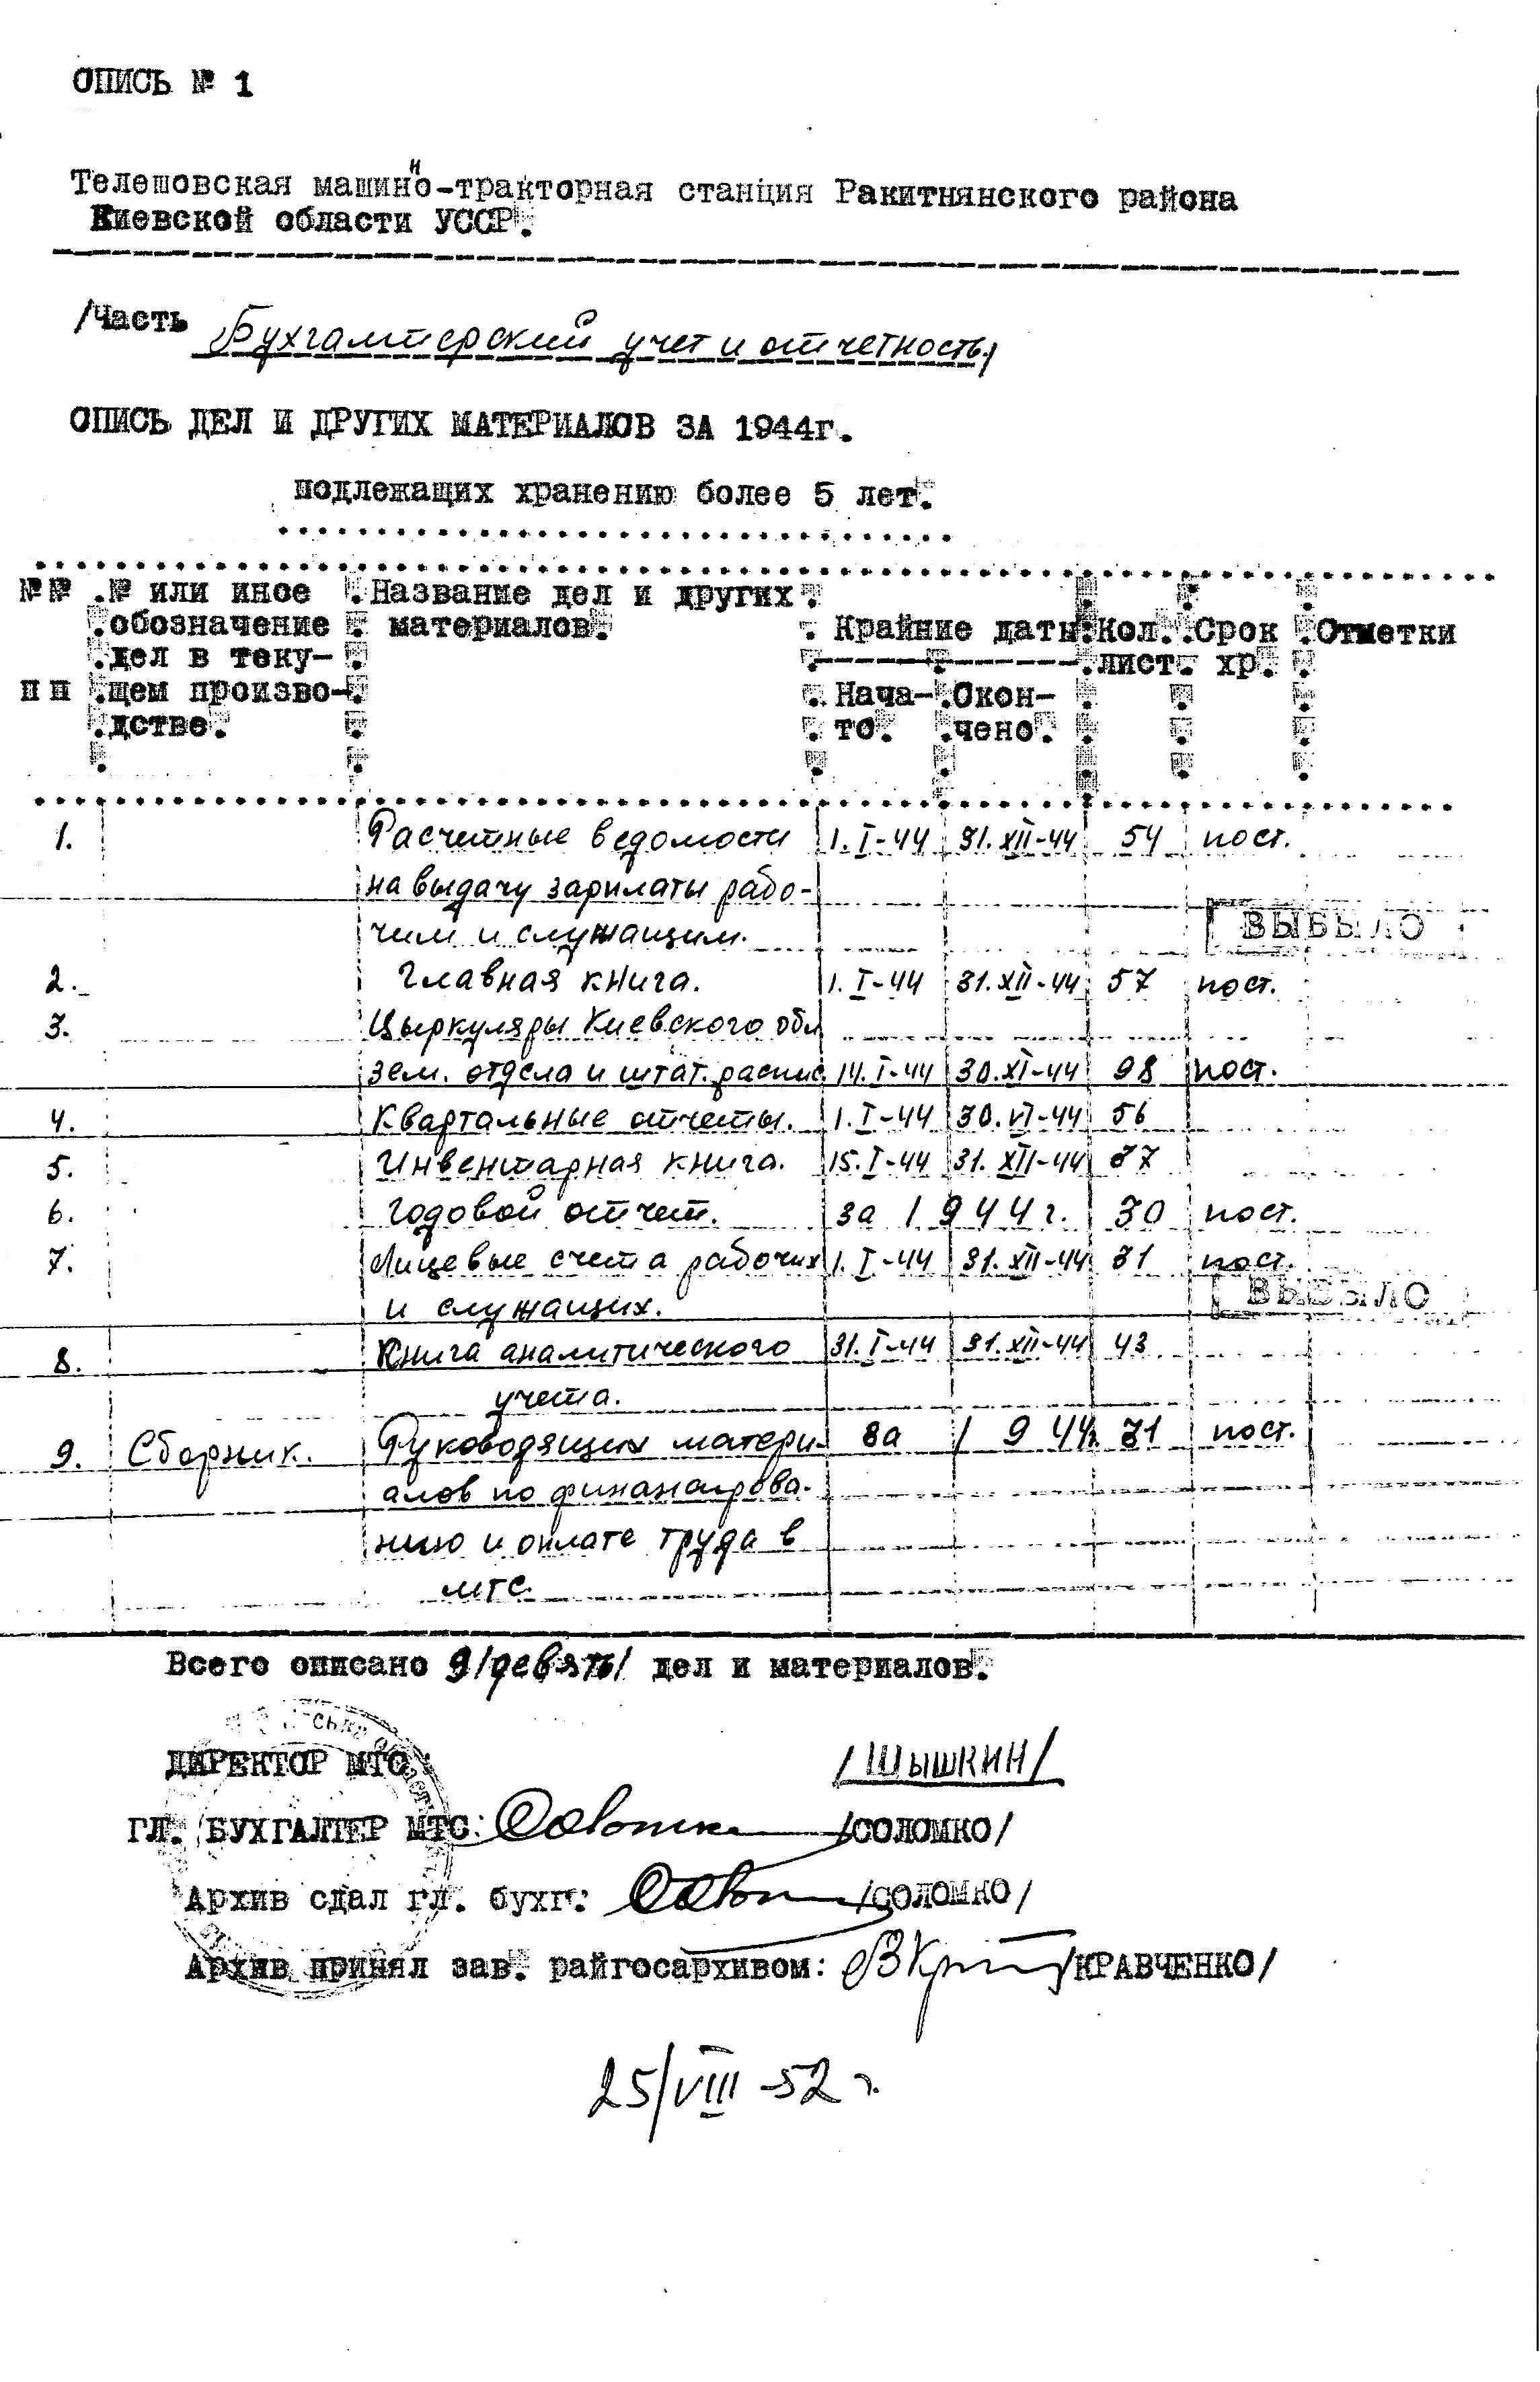 ОПИСЬ № 1
Телешовская машинно-тракторная станция Ракитнянского района
Киевской области УССР.
/Часть Бухгалтерский учет и отчетность/
ОПИСЬ ДЕЛ И ДРУГИХ МАТЕРИАЛОВ ЗА 1944г.
подлежащих хранению более 5 лет.
№№ № или иное Название дел и других
обозначение материалов. Крайние даты Кол. Срок Отметки
дел в теку- лист. хр.
п п щем произво- Нача- Окон-
дстве. то. чено.
1. Расчетные ведомости 1.I-44 31.XII-44 54 пост.
на выдачу зарплаты рабо-
чим и служащим. ВЫБЫЛО
2. Главная книга. 1.I-44 31.XII-44 57 пост.
3. Цыркуляры Киевского обл
зем. отдела и штат. распис. 14.I-44 30.XI-44 98 пост.
4. Квартальные отчеты. 1.I-44 30.VI-44 56
5. Инвентарная книга. 15.I-44 31.XII-44 37
6. Годовой отчет. за 1944г. 30 пост.
7. Лицевые счета рабочих 1.I-44 31.XII-44 31 пост.
и служащих. ВЫБЫЛО
8. Книга аналитического 31.I-44 31.XII-44 43
учета.
9. Сборник. Руководящих матери- за 1944г. 31 пост.
алов по финансирова-
нию и оплате труда в
МТС.
Всего описано 9/девять/ дел и материалов.
ДИРЕКТОР МТС: /ШЫШКИН/
ГЛ. БУХГАЛТЕР МТС: /СОЛОМКО/
Архив сдал гл. бухг: /СОЛОМКО/
Архив принял зав. райгосархивом: /КРАВЧЕНКО/
25/VIII-52 г.